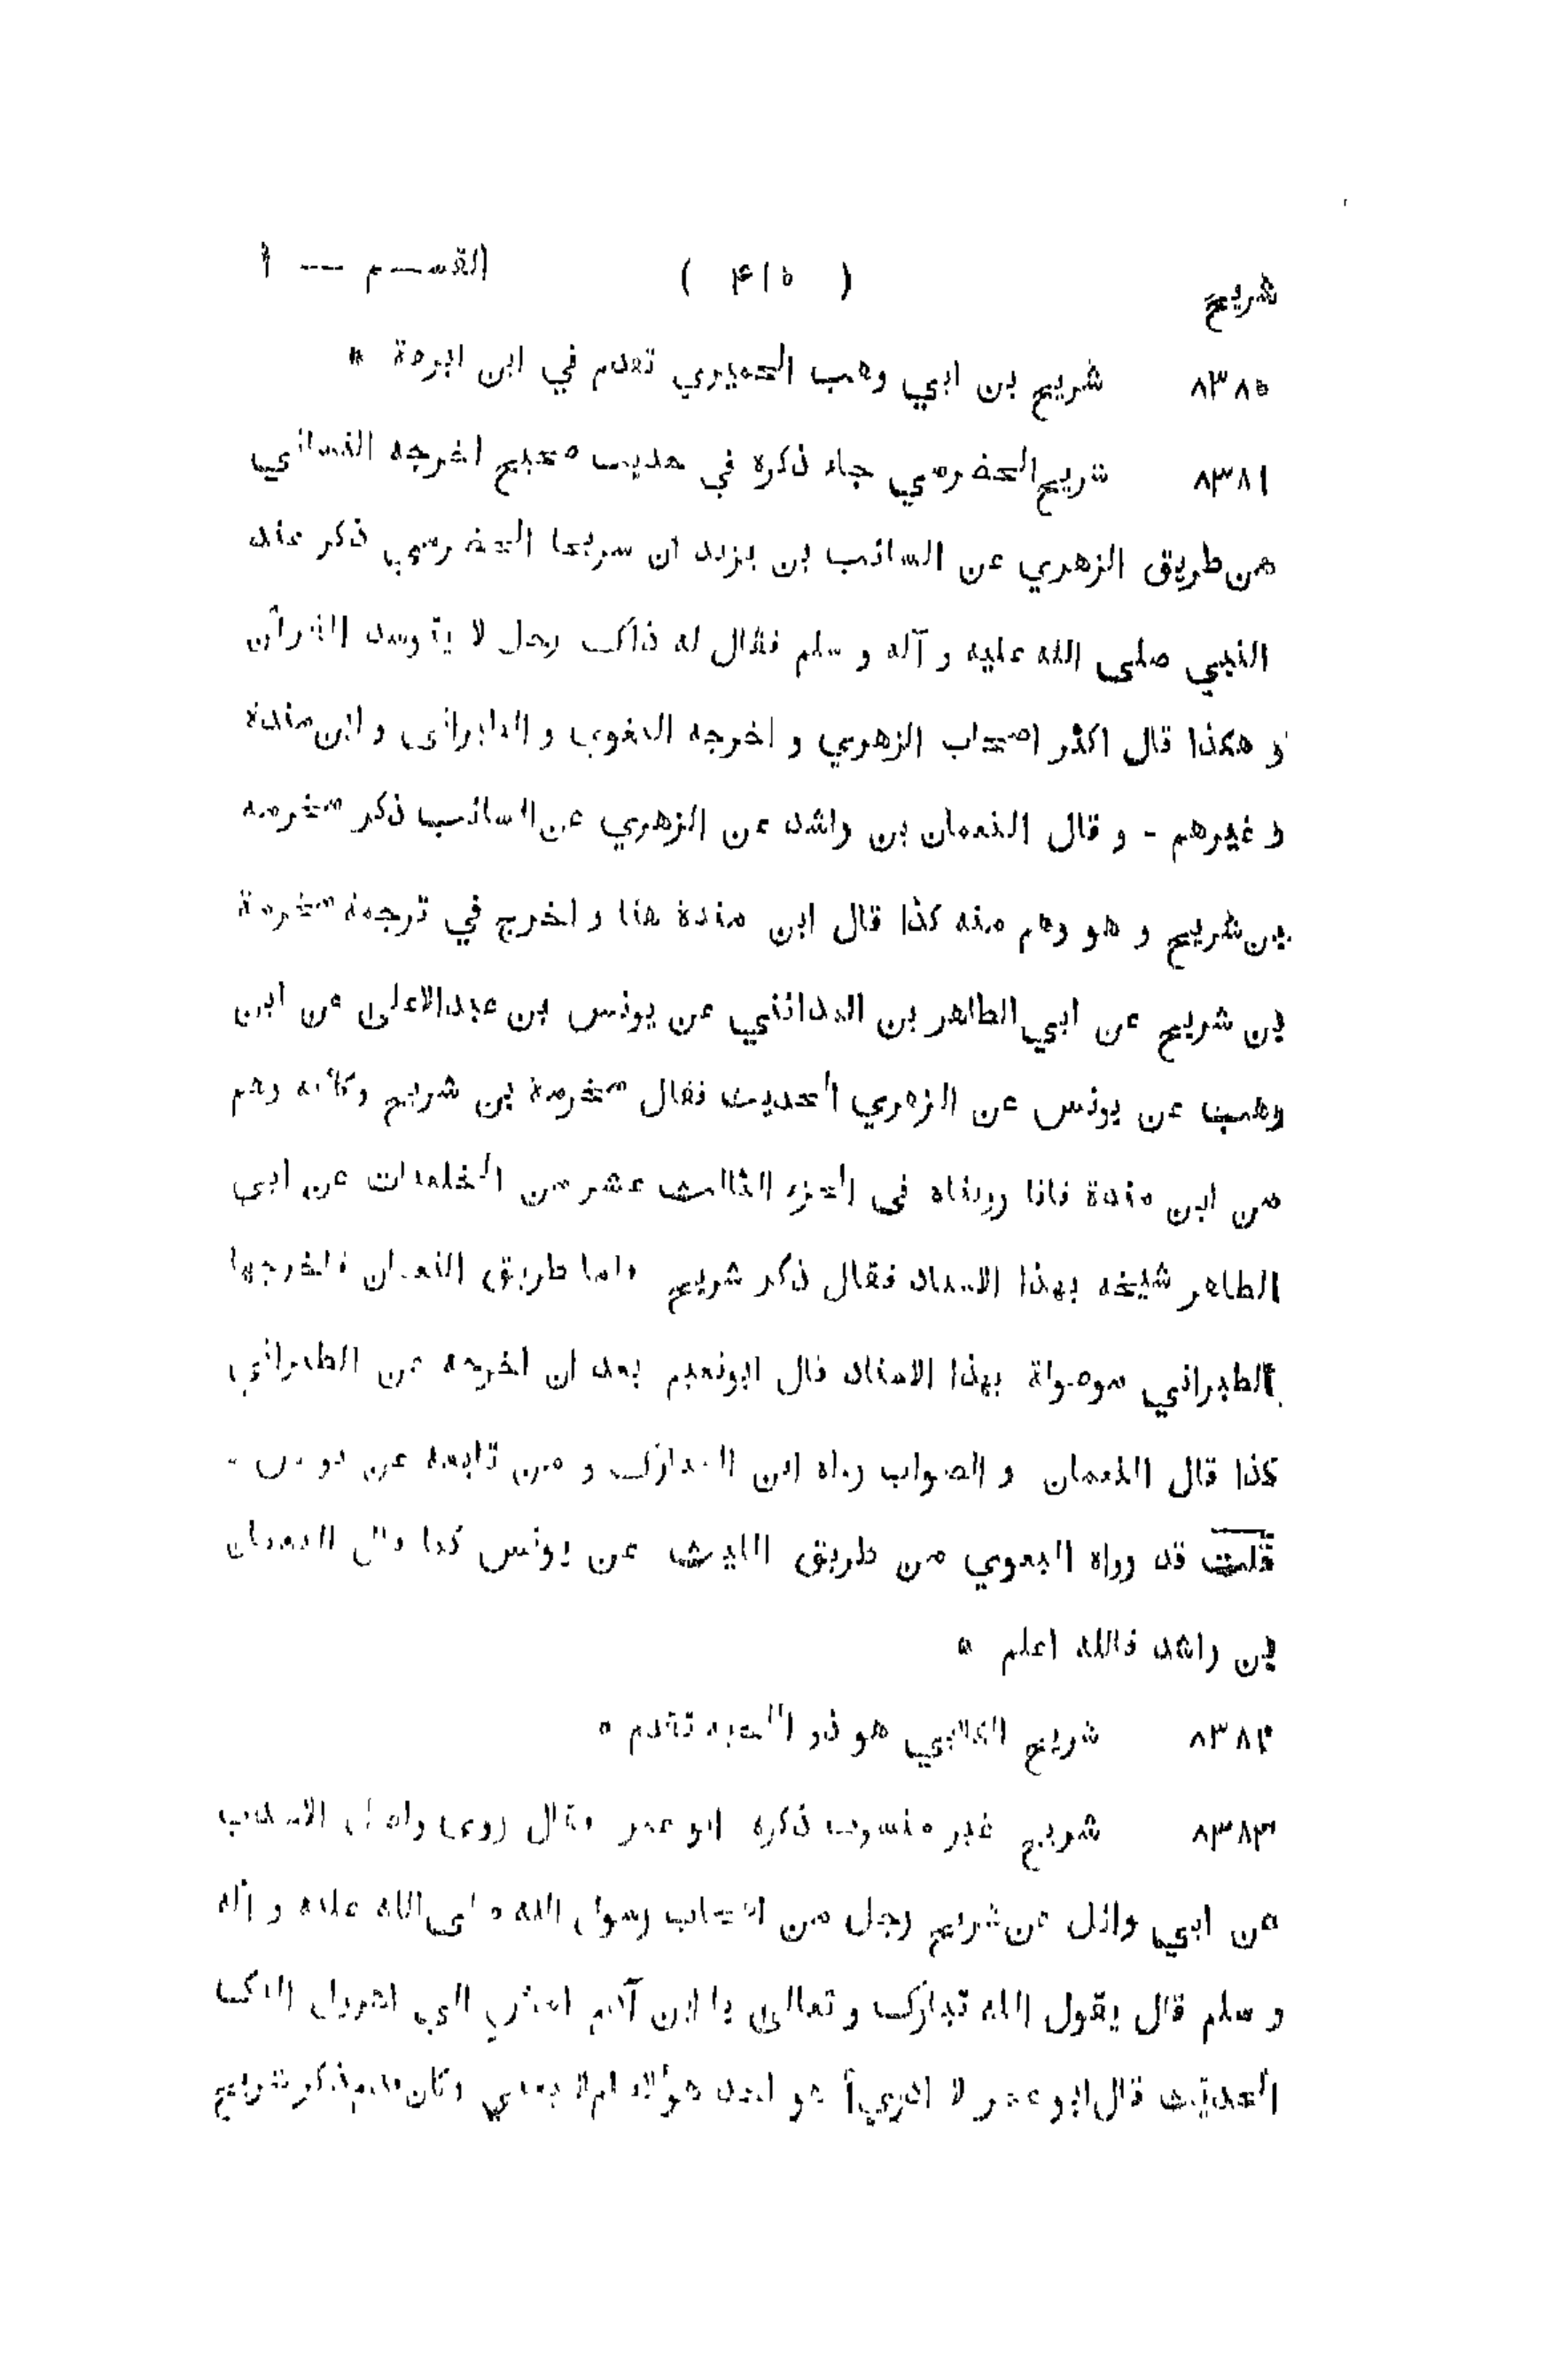 شريح ( ۴۱۵ ) القسم — ۱
۸۳۸۵ شريح بن ابي وهب الحميري تقدم في ابن ابرهة *
۸۳۸۱ شريح الحضرمي جاء ذكره في حديث صحيح اخرجه النسائي
من طريق الزهري عن السائب بن يزيد ان شريحا الحضرمي ذكر عند
النبي صلى الله عليه و آله و سلم فقال له ذاك رجل لا يتوسد القرآن
و هكذا قال اكثر اصحاب الزهري و اخرجه البغوي و الطبراني و ابن مندة
و غيرهم - و قال النعمان بن راشد عن الزهري عن السائب ذكر مخرمه
بن شريح و هو وهم منه كذا قال ابن مندة هنا و اخرج في ترجمة مخرمة
بن شريح عن ابي الطاهر بن المدائني عن يونس بن عبدالاعلى عن ابن
وهب عن يونس عن الزهري الحديث فقال مخرمة بن شريح وكأنه وهم
من ابن مندة فانا رويناه فى الجزء الثالث عشر من الخلعيات عن ابي
الطاهر شيخه بهذا الاسناد فقال ذكر شريح واما طريق النعمان فاخرجها
الطبراني موصولة بهذا الاسناد قال ابونعيم بعد ان اخرجه عن الطبراني
كذا قال النعمان و الصواب رواه ابن المبارك و من تابعه عن يونس -
قلت قد رواه البغوي من طريق الليث عن يونس كما قال النعمان
بن راشد فالله اعلم *
۸۳۸۲ شريح الكلابي هو ذو اللحية تقدم *
۸۳۸۳ شريح غير منسوب ذكره ابو عمر فقال روى واصل الاحدب
عن ابي وائل عن شريح رجل من اصحاب رسول الله صلى الله عليه و آله
و سلم قال يقول الله تبارك و تعالى يا ابن آدم امش الي اهرول اليك
الحديث قال ابو عمر لا ادري أ هو احد هؤلاء ام لا يعني وكان ذكر شريح